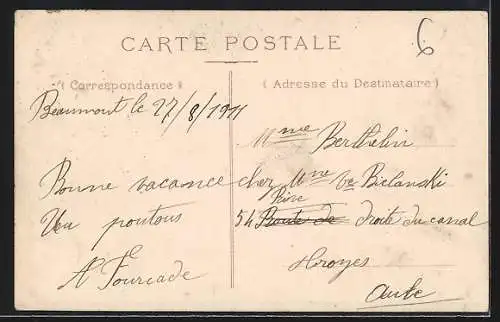 CARTE POSTALE
6
(Correspondance)
(Adresse du Destinataire)
Beaumont le 27/8/1911
Bonne vacance
Un poutous
A Fourcade
Mme Berthelin
chez Mme Ve Bielanski
Rive
54 Route de droite du canal
Troyes
Aube